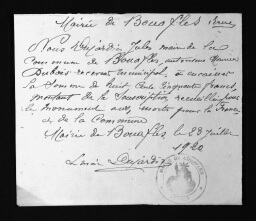 Mairie de Bouafles Eure
Nous Dejardin Jules maire de la
Commune de Bouafles, autorisons Monsieur
Dubois receveur municipal, à encaisser
la Somme de huit Cents Cinquante francs
montant de la Souscription recueillie pour
le monument aux morts pour la France
de la Commune
Mairie de Bouafles le 28 juillet
1920
Dejardin